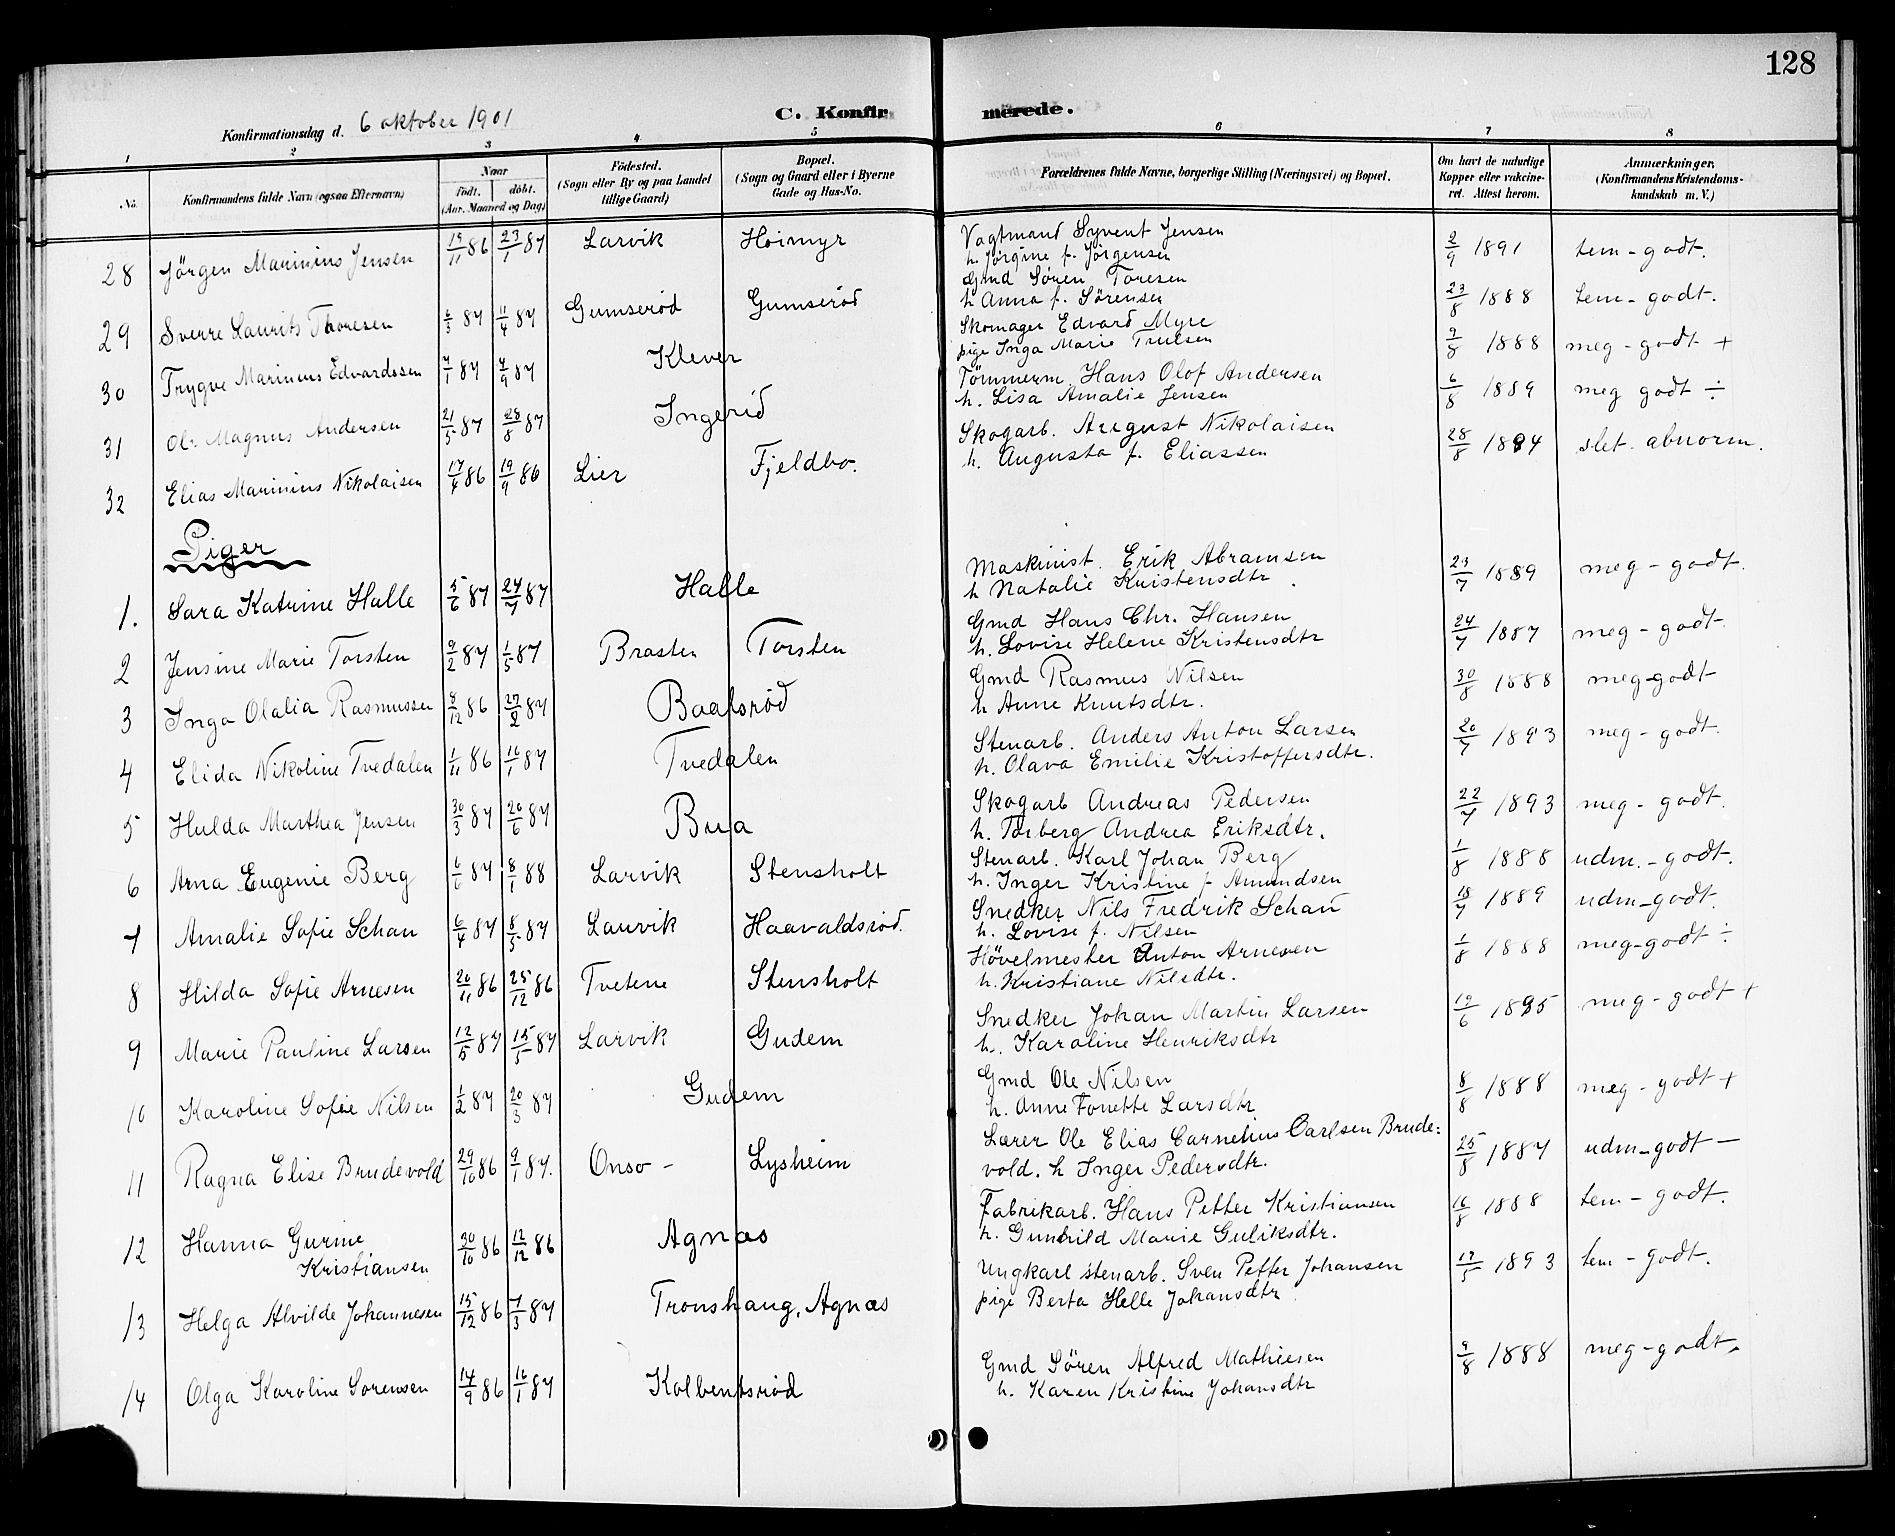 128
Konfirmationsdag d. 6 oktober 1901
C. Konfirmerede.
1 2 3 4 5 6 7 8
No. Konfirmandens fulde Navn (ogsaa Efternavn) Naar født. døbt. (Aar. Maaned og Dag) Födested. (Sogn eller By og paa Landet tillige Gaard) Bopæl. (Sogn og Gaard eller i Byerne Gade og Hus-No. Forældrenes fulde Navne, borgerlige Stilling (Næringsvei) og Bopæl. Om havt de naturlige Kopper eller vakcineret. Attest herom. Anmærkninger. (Konfirmandens Kristendomskundskab m. V.)
28 Jörgen Marinius Jensen 19/11 86 23/1 87 Larvik Hoimyr Vagtmand Syvent Jensen
h. Jörgine f. Jörgensen 2/9 1891 tem-godt.
29 Sverre Laurits Thoresen 6/3 87 11/4 87 Gumserød Gumserød Gmd Søren Toresen
h Anna f. Sørensen 23/8 1888 tem-godt.
30 Trygve Marinius Edvardssen 7/1 87 4/9 87 Klever Skomager Edvard Myre
pige Inga Marie Trulsen 1888 meg-godt +
31 Ole Magnus Andersen 21/5 87 28/8 87 Ingerid Tømmerm. Hans Olof Andersen
h. Lisa Amalie Jensen 6/8 1889 meg godt ÷
32 Elias Marinius Nikolaisen 17/4 86 19/9 86 Lier Fjeldbo. Skogarb. August Nikolaisen
h. Augusta f. Eliassen 28/8 1894 slet. abnorm.
Piger
1. Sara Katrine Halle 5/6 87 24/7 87 Halle Maskinist. Erik Abramsen
h Natalie Kristensdtr. 23/7 1889 meg-godt.
2 Jensine Marie Torsten 9/2 87 1/5 87 Brasten Torsten Gmd Hans Chr. Hansen
h. Lovise Helene Kristensdtr 24/7 1887 meg-godt.
3 Inga Olalia Rasmussen 8/12 86 27/2 87 Baalsrød Gmd Rasmus Nilsen
h Anne Knutsdtr. 30/8 1888 meg-godt
4 Elida Nikoline Tvedalen 1/11 86 16/1 87 Tvedalen Stenarb. Anders Anton Larsen
h. Olava Emilie Kristoffersdtr. 20/7 1893 meg-godt.
5 Hulda Marthea Jensen 30/3 87 26/6 87 Bua Skogarb Andreas Pedersen
h. Torberg Andrea Eriksdtr. 22/7 1893 meg-godt.
6 Arna Eugenie Berg 6/6 87 8/1 88 Larvik Stensholt Stenarb. Karl Johan Berg
h. Inger Kristine f Amundsen 1/8 1888 udm.-godt.
7 Amalie Sofie Schau 6/4 87 8/5 87 Laurvik Haavaldsrød. Snedker Nils Fredrik Schau
h. Lovise f. Nilsen 18/7 1889 udm-godt.
8 Hilda Sofie Arnesen 20/11 86 25/12 86 Tvetene Stensholt Hövelmester Anton Arnesen
h. Kristiane Nilsdtr. 1/8 1888 meg-godt ÷
9 Marie Pauline Larsen 12/5 87 15/5 87 Larvik Gudem Snedker Johan Martin Larsen
h. Karoline Henriksdtr 19/6 1895 meg-godt +
10 Karoline Sofie Nilsen 1/2 87 20/3 87 Gudem Gmd Ole Nilsen
h. Anne Tonette Larsdtr. 8/8 1888 meg-godt +
11 Ragna Elise Brudevold 29/10 86 9/1 87. Onsø - Lysheim Lærer Ole Elias Cornelius Carlsen Brude:
vold. h Inger Pedersdtr. 25/8 1887 udm-godt —
12 Hanna Gurine
Kristiansen 30/10 86 12/12 86 Agnæs Fabrikarb. Hans Petter Kristiansen
h. Gunhild Marie Guliksdtr. 16/8 1888 tem-godt.
13 Helga Alvilde Johannesen 15/12 86 7/3 87 Tronshaug, Agnæs Ungkarl stenarb. Sven Petter Johansen
pige Berta Helle Johansdtr 17/5 1893 tem-godt.
14 Olga Karoline Sorensen 14/9 86 16/1 87 Kolbentsrød Gmd Sören Alfred Mathiesen
h. Karen Kristine Johansdtr 9/8 1888 meg-godt.